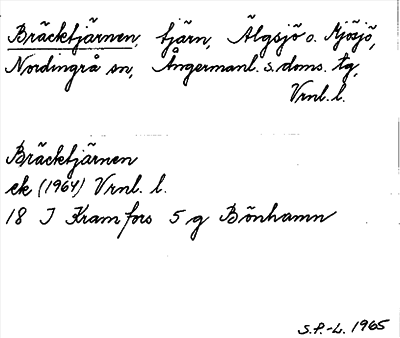 Bräcktjärnen, tjärn, Älgsjö o. Mjösjö,
Nordingrå sn, Ångermanl. s. doms. tg,
Vrnl. l.
Bräcktjärnen
ek (1964) Vrnl. l.
18 I Kramfors 5 g Bönhamn
S.P.-L. 1965